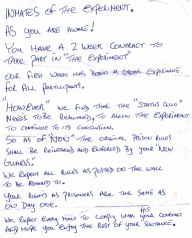 INMATES OF THE EXPERIMENT.
AS YOU ARE AWARE!
YOU HAVE A 2 WEEK CONTRACT TO
TAKE PART IN "THE EXPERIMENT"
OUR FIRST WEEK HAS BEEN A EXPERIENCE
FOR ALL PARTICIPANTS.
"HOWEVER" WE FIND THAT THE "STATUS QUO"
NEEDS TO BE RETURNED, TO ALLOW THE EXPERIMENT
TO CONTINUE TO ITS CONCLUSION.
SO AS OF "NOW" THE ORIGINAL PRISON RULES
SHALL BE REINSTATED AND ENFORCED BY YOUR NEW
GUARDS!
WE EXPECT ALL RULES AS POSTED ON THE WALL
TO BE ADHERED TO.
YOUR RIGHTS AS PRISONERS ARE THE SAME AS
ON DAY ONE.
WE EXPECT EVERY MAN TO COMPLY WITH YOUR CONTRACT
AND HOPE YOU ENJOY THE REST OF YOUR SENTENCE.